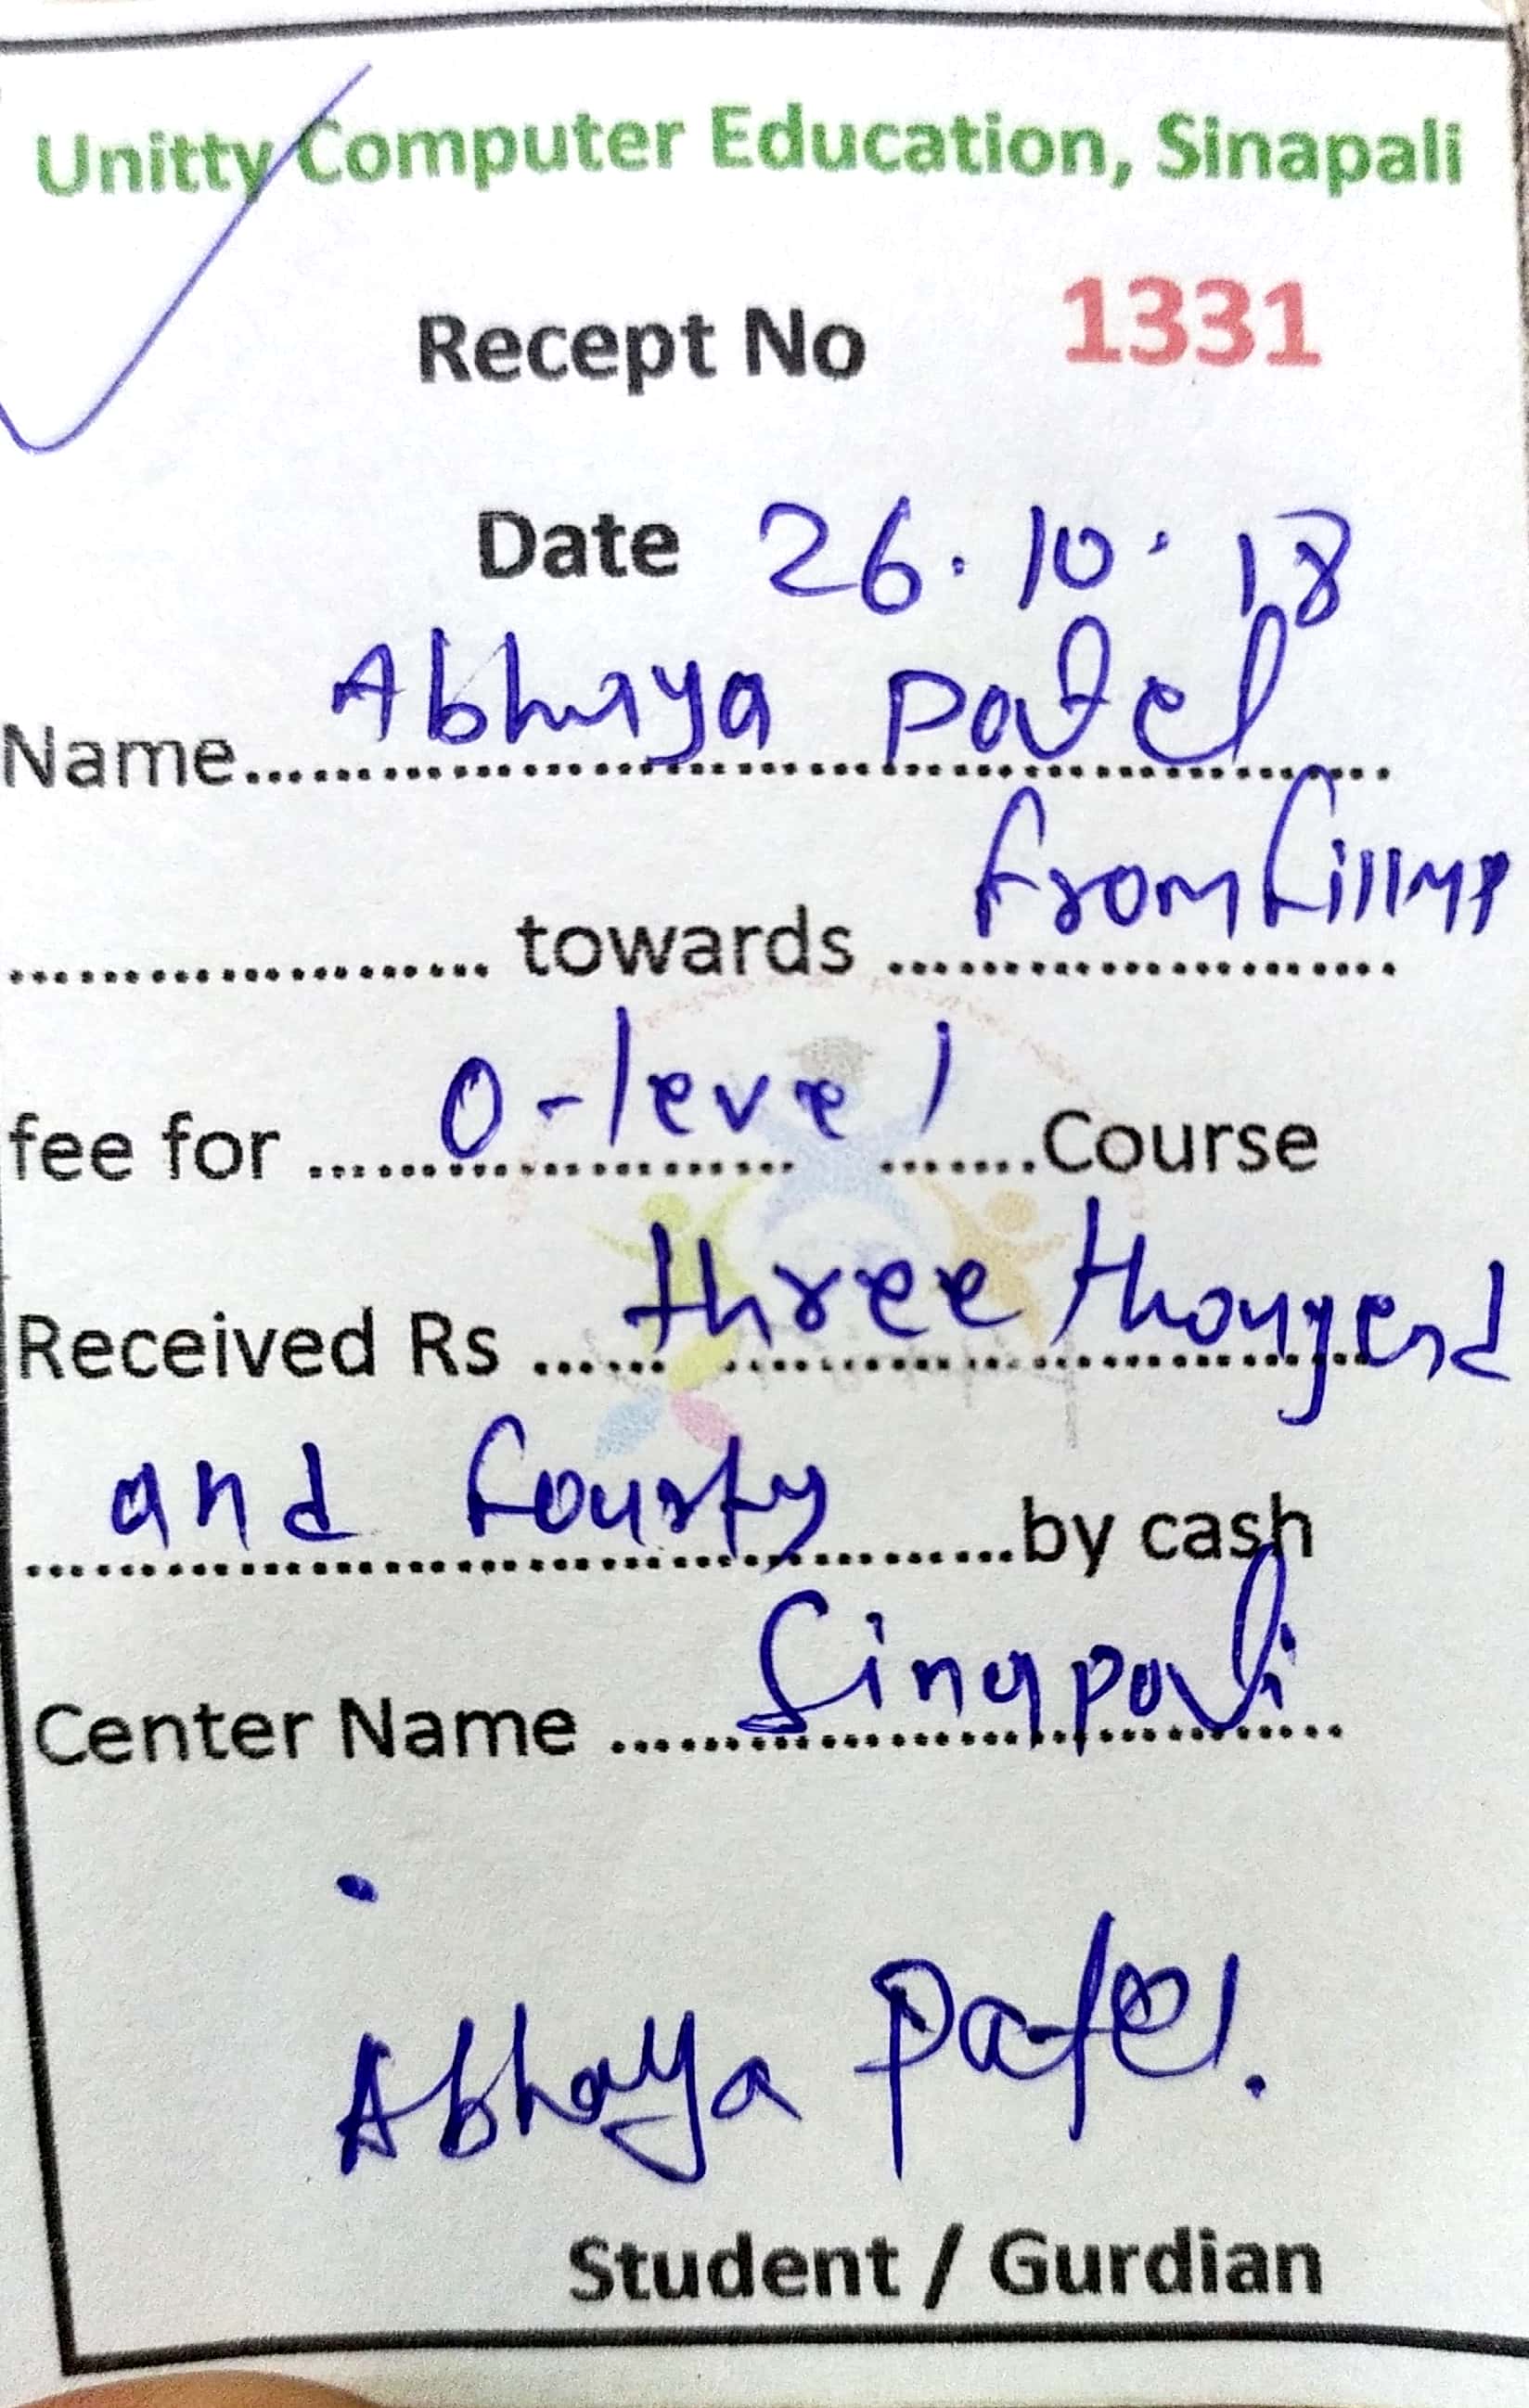 Unitty Computer Education, Sinapali
Recept No 1331
Date 26.10.18
Name.......... Abhaya Patel
.......... towards .......... from filling
fee for .......... O-level ..........Course
Received Rs .......... three thougend
and fourty ..........by cash
Center Name .......... Sinapali
Abhaya Patel.
Student / Gurdian